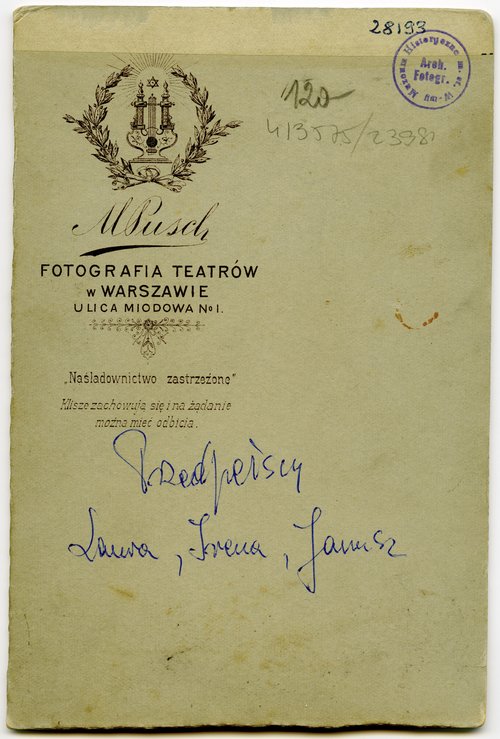 28193
Muzeum Historyczne m. st. W-wy
Arch.
Fotogr.
120
M Pusch
FOTOGRAFIA TEATRÓW
w WARSZAWIE
ULICA MIODOWA No 1.
„Naśladownictwo zastrzeżone"
Klisze zachowują się i na żądanie
można mieć odbicia.
Laura, Irena, Janusz